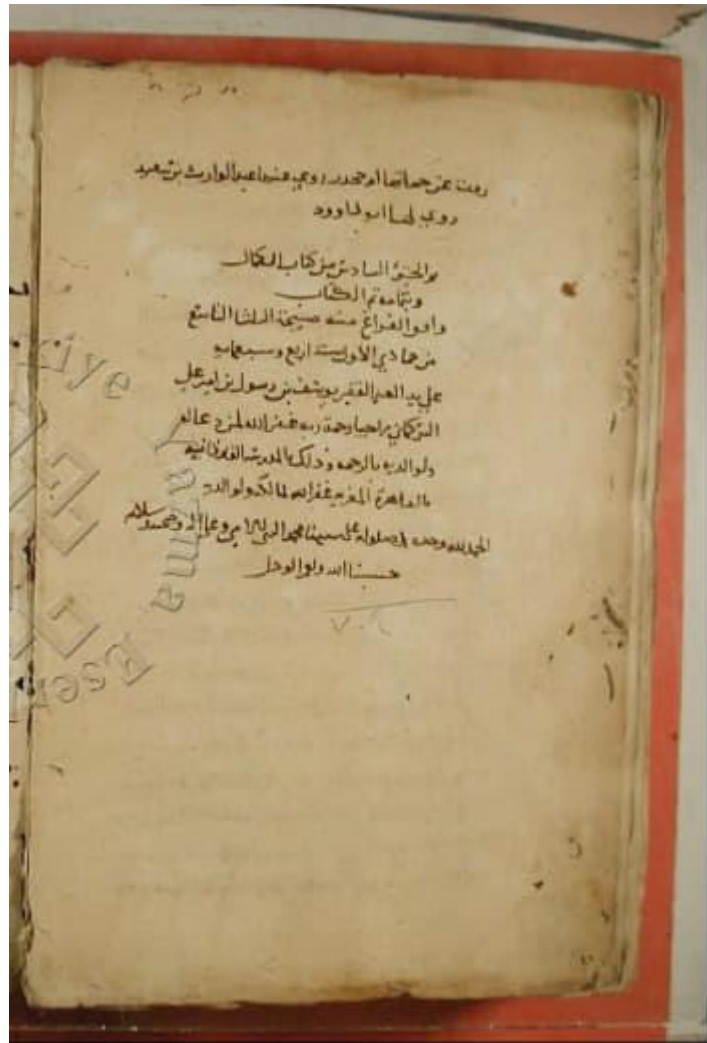 روت عن حماتها أم جحدر روى عنها عبد الوارث بن سعيد
روى لها أبو داوود
تم الجزء السادس من كتاب الكمال
وبتمامه تم الكتاب
وافق الفراغ منه صبيحة الثلثا التاسع
من جمادي الاول سنة اربع وسبعمايه
علي يد العبد الفقير يوسف بن رسول بن امير علي
التركماني راجيا رحمة ربه غفر الله لمن دعا له
ولوالديه بالرحمه وذلك بالمدرسة
بالقاهرة المعزيه غفر الله لمالكه ولوالديه
الحمد لله وحده وصلواته على سيدنا محمد النبي الامي وعلى اله وصحبه وسلامه
حسبنا الله ونعم الوكيل
٧٠٤
Türkiye
Yazma
Eser